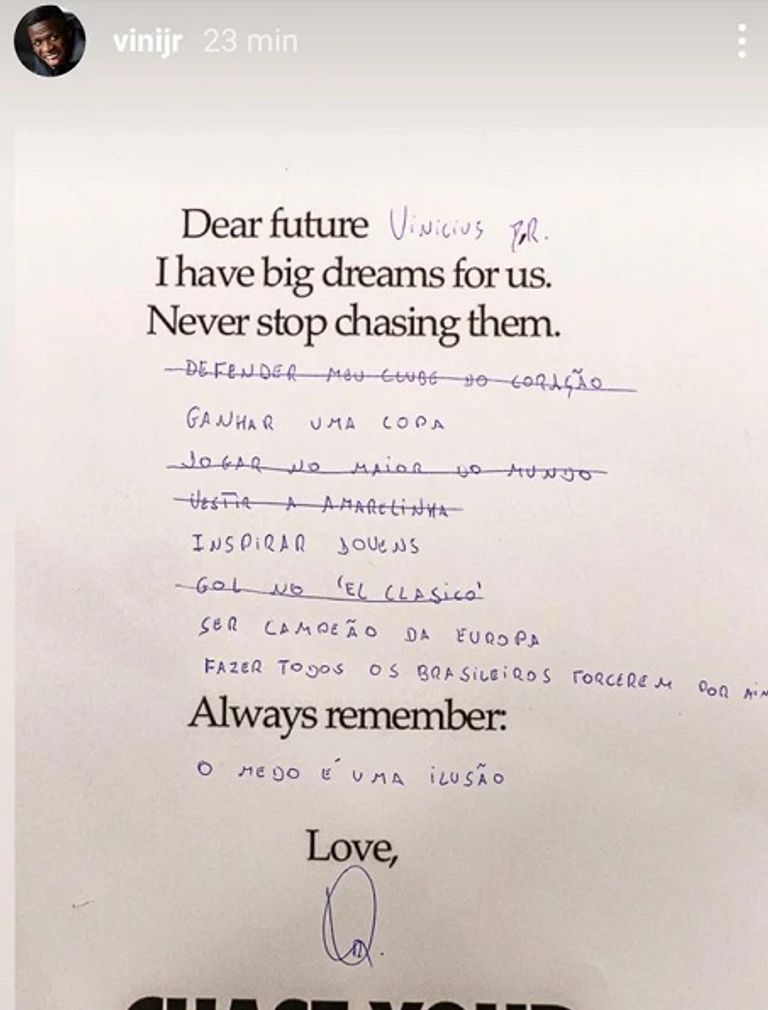 vinijr 23 min
Dear future Vinicius JR.
I have big dreams for us.
Never stop chasing them.
DEFENDER MEU CLUBE DO CORAÇÃO
GANHAR UMA COPA
JOGAR NO MAIOR DO MUNDO
VESTIR A AMARELINHA
INSPIRAR JOVENS
GOL NO 'EL CLASICO'
SER CAMPEÃO DA EUROPA
FAZER TODOS OS BRASILEIROS TORCEREM POR
Always remember:
O MEDO É UMA ILUSÃO
Love,